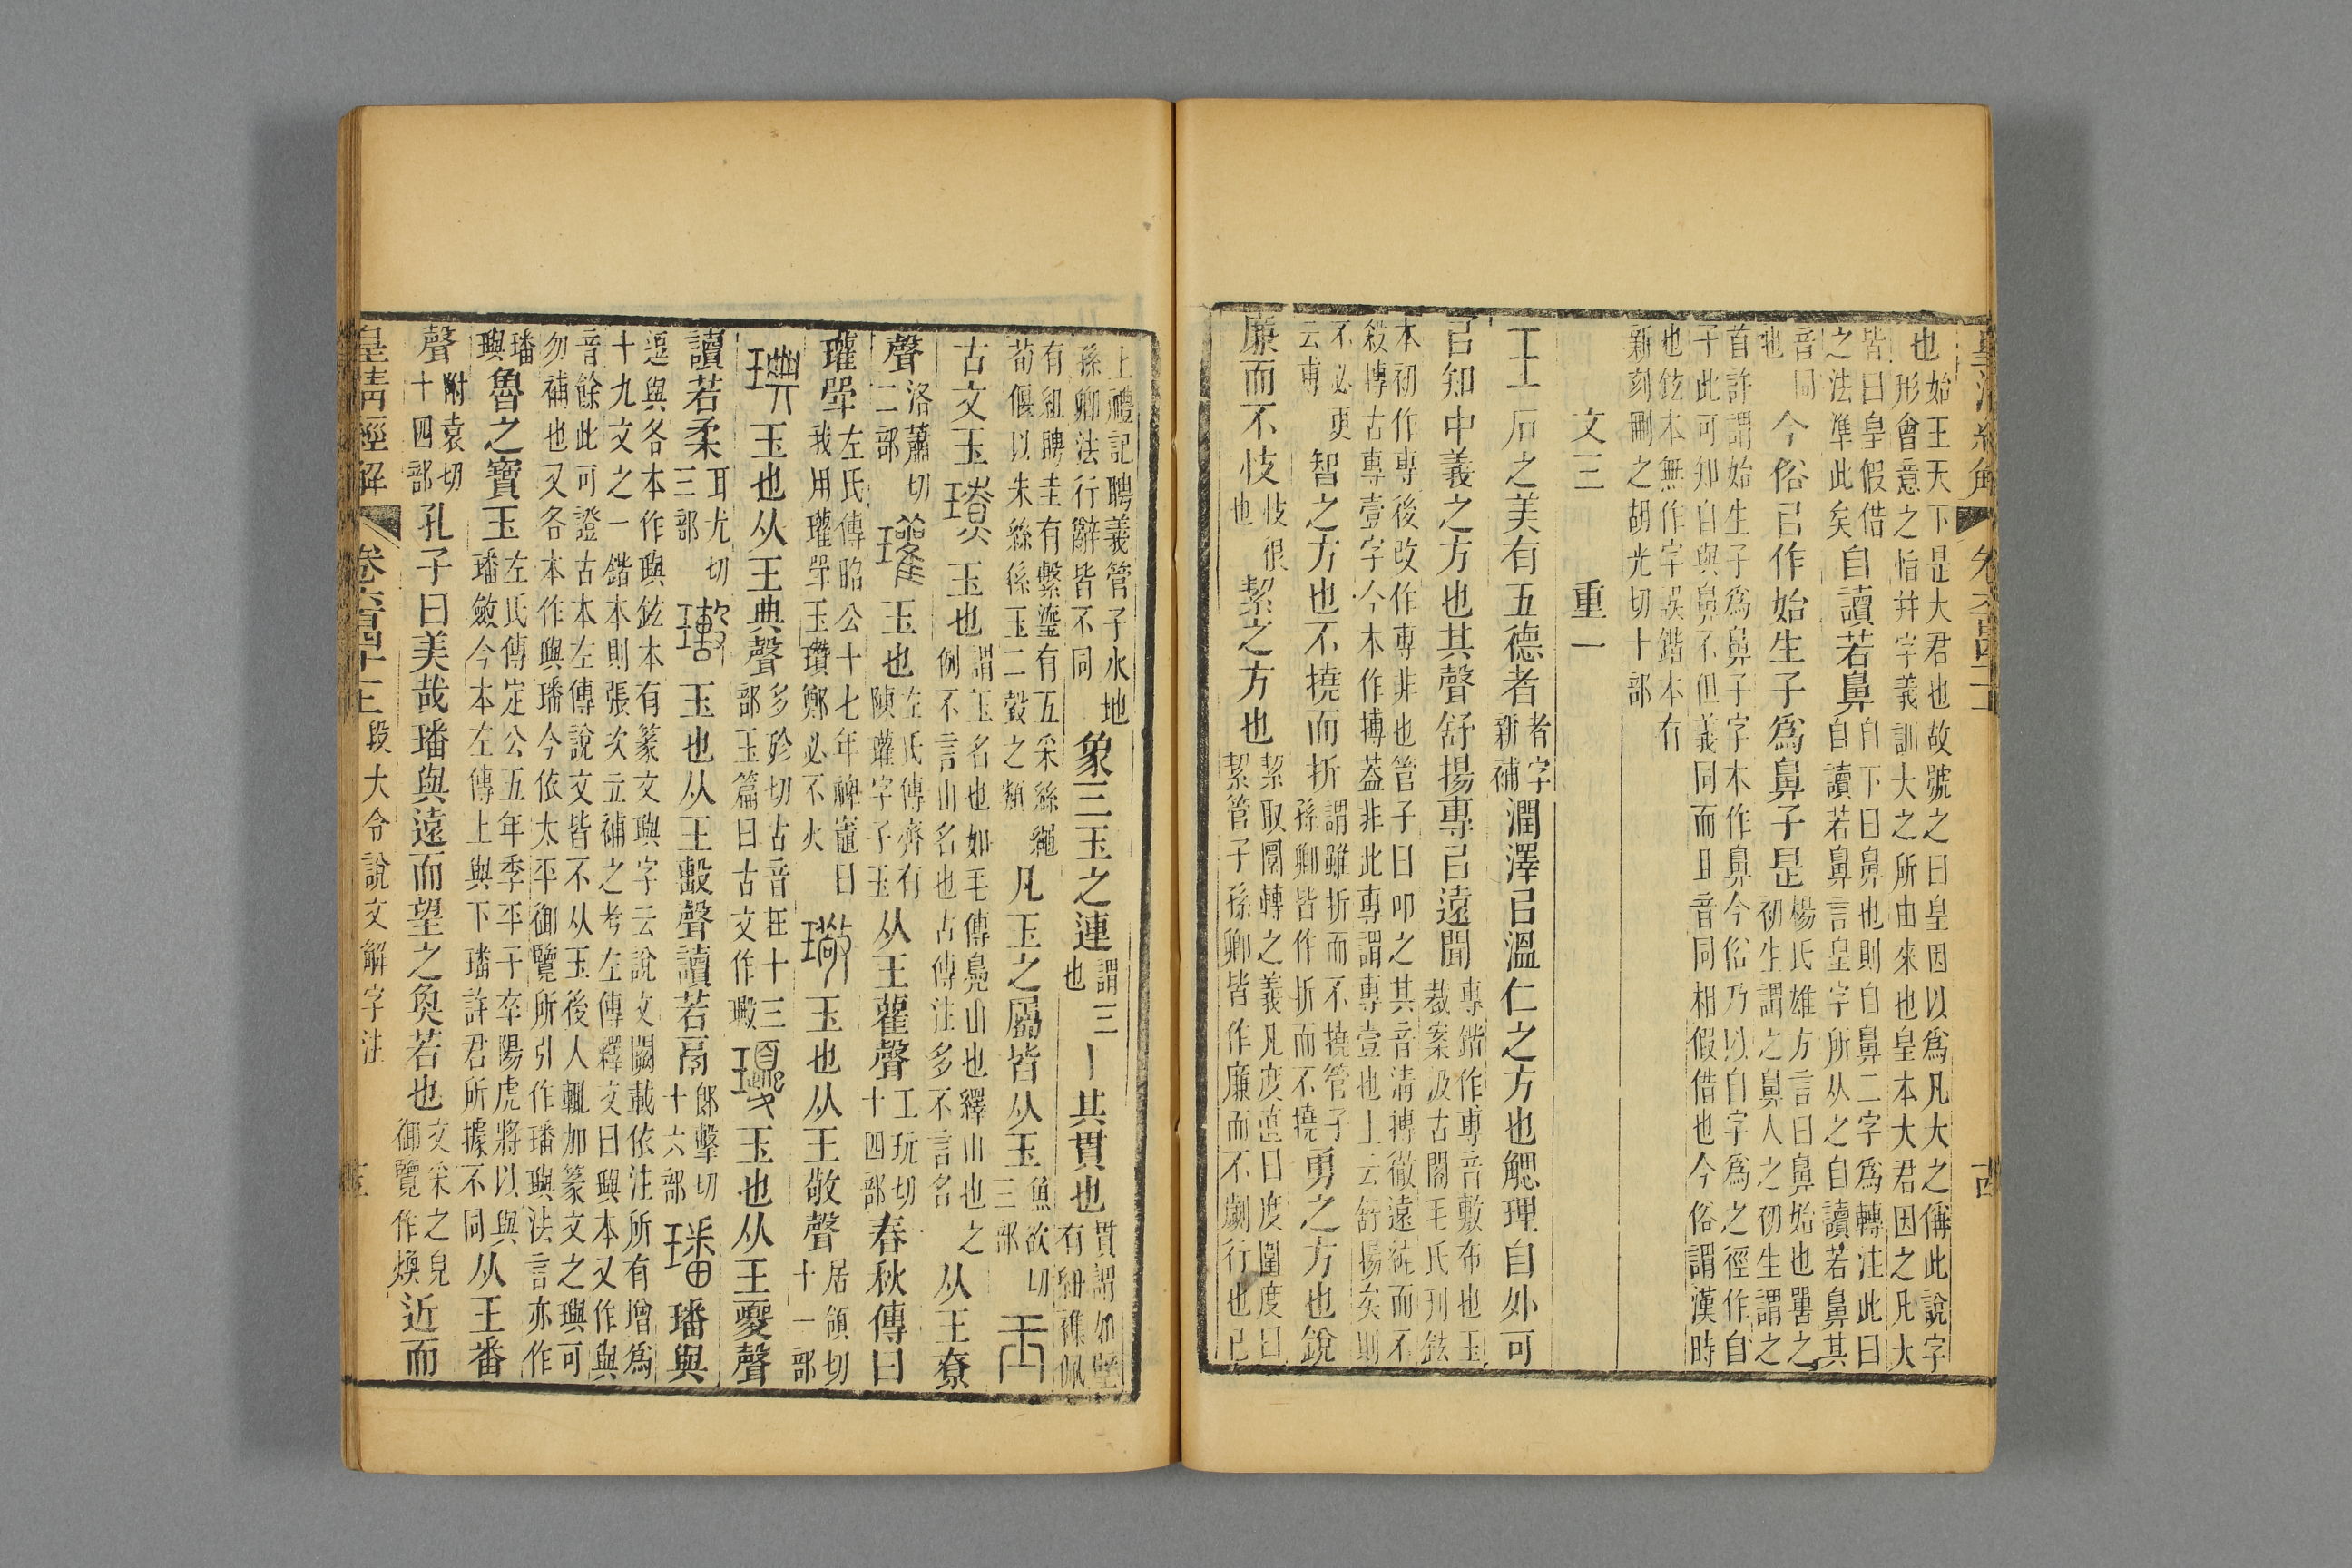 皇清經解 卷六百四十一上 古
也
始王天下是大君也故號之曰皇因以爲凡大之偁此說字
形會意之恉幷字義訓大之所由來也皇本大君因之凡大
皆曰皇假借
之法準此矣
自讀若鼻
自下曰鼻也則自鼻二字爲轉注此曰
自讀若鼻言皇字所从之自讀若鼻其
音同
也
今俗㠯作始生子爲鼻子是
楊氏雄方言曰鼻始也嘼之
初生謂之鼻人之初生謂之
首許謂始生子爲鼻子字本作鼻今俗乃以自字爲之徑作自
子此可知自與鼻不但義同而且音同相假借也今俗謂漢時
也鉉本無作字誤鍇本有
新刻刪之胡光切十部
文三 重一
王
石之美有五德者
者字
新補
潤澤㠯溫仁之方也䚡理自外可
㠯知中義之方也其聲舒揚專㠯遠聞
專鍇作尃音敷布也玉
裁案汲古閣毛氏刊鉉
本初作專後改作尃非也管子曰叩之其音清搏徹遠純而不
殺摶古專壹字今本作搏蓋非此專謂專壹也上云舒揚矣則
不必更
云尃
智之方也不撓而折
謂雖折而不撓管子
孫卿皆作折而不撓
勇之方也銳
廉而不忮
忮很
也
絜之方也
絜取圜轉之義凡度直曰度圍度曰
絜管子孫卿皆作廉而不劌行也已
上禮記聘義管子水地
孫卿法行辭皆不同
象三玉之連
謂三
也
丨其貫也
貫謂如璧
有紐襍佩
有組聘圭有繫瑬有五采絲繩
荀偃以朱絲係玉二瑴之類
凡玉之屬皆从玉
魚欲切
三部
𤣪
古文玉
璙
玉也
謂玉名也如毛傳鳧山也繹山也之
例不言山名也古傳注多不言名
从王尞
聲
洛蕭切
二部
瓘
玉也
左氏傳齊有
陳瓘字子玉
从王雚聲
工玩切
十四部
春秋傳曰
瓘斝
左氏傳昭公十七年禆竈曰
我用瓘斝玉瓚鄭必不火
璥
玉也从王敬聲
居領切
十一部
琠
玉也从王典聲
多殄切古音在十三
部玉篇曰古文作㼭
瓇
玉也从王夒聲
讀若柔
耳尤切
三部
玉也从王毄聲讀若鬲
郎擊切
十六部
璠
璠與
逗與各本作璵鉉本有篆文璵字云說文闕載依注所有增爲
十九文之一鍇本則張次立補之考左傳釋文曰璵本又作與
音餘此可證古本左傳說文皆不从玉後人輒加篆文之璵可
勿補也又各本作與璠今依太平御覽所引作璠璵法言亦作
璠
璵
魯之寶玉
左氏傳定公五年季平子卒陽虎將以與
璠斂今本左傳上與下璠許君所據不同
从王番
聲
附袁切
十四部
孔子曰美哉璠與遠而望之奐若也
文采之皃
御覽作煥
近而
皇清經解 卷六百四十一上 段大令說文解字注